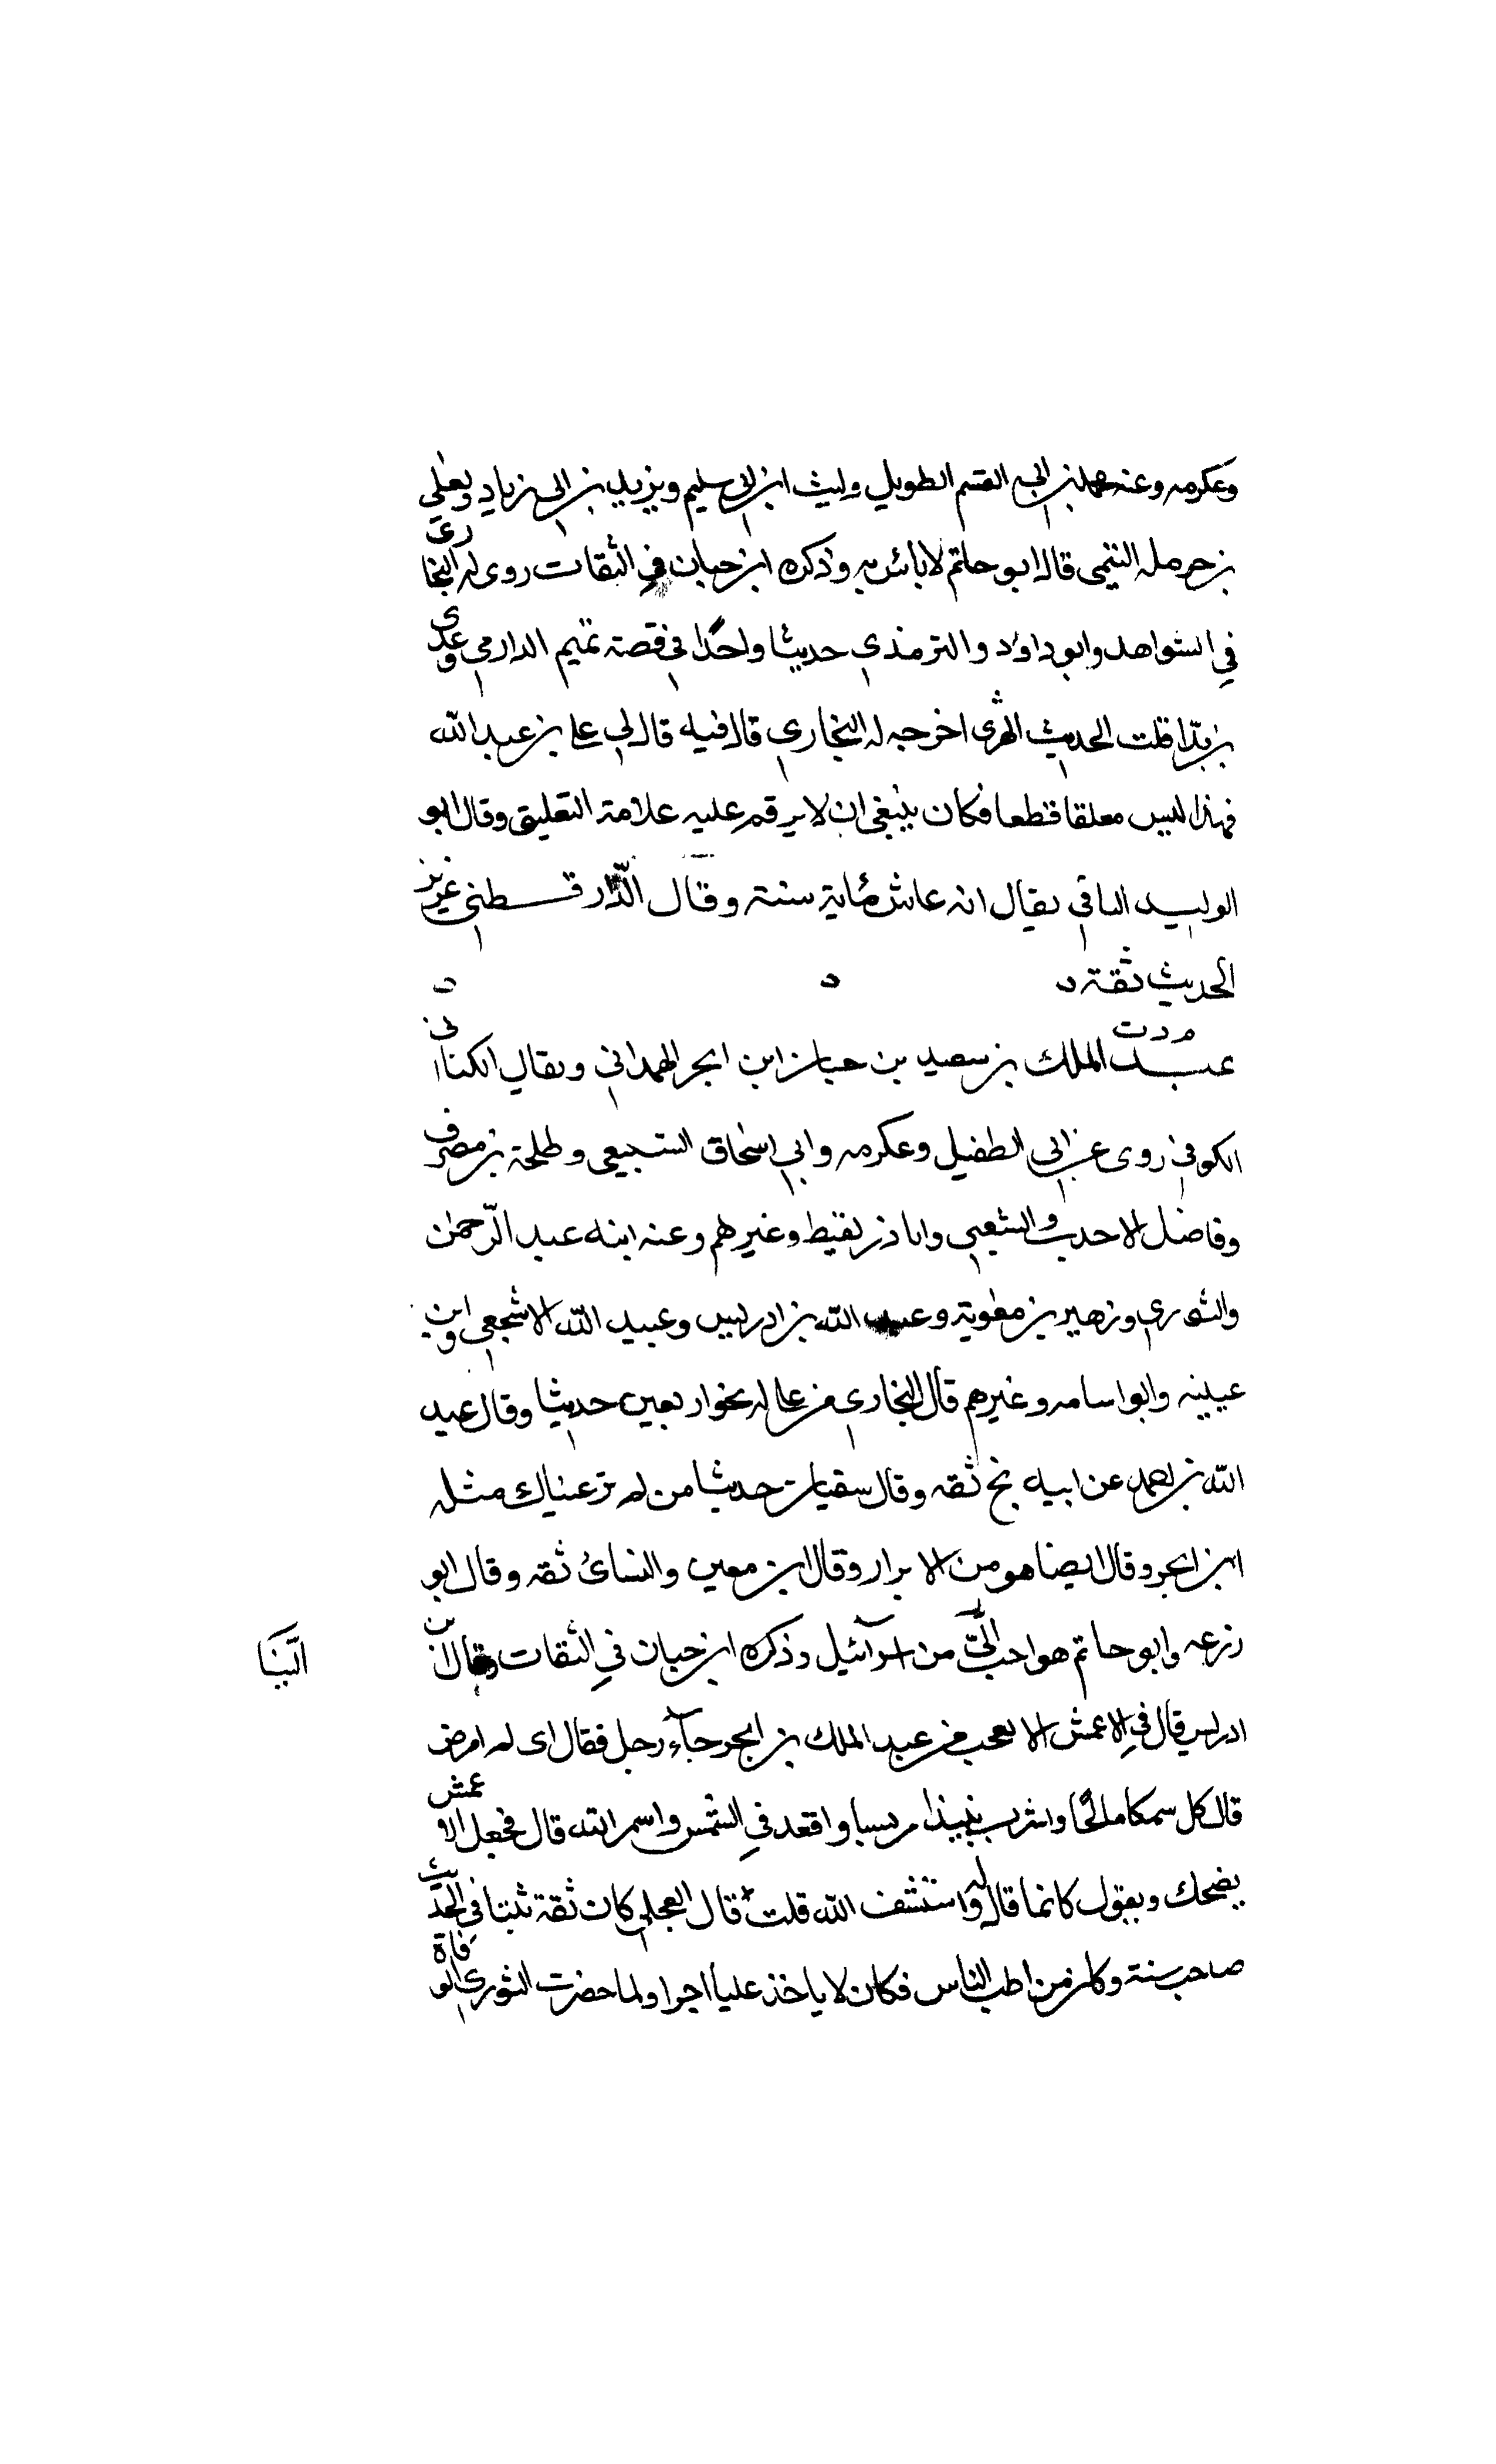 وعكرمه وعنه محمد بن ابي القسم الطويل وليث ابن ابي سليم ويزيد بن ابي زياد ويعلي
بن حرمله التيمي قال ابو حاتم لا بأس به وذكره ابن حبان في الثقات روى له البخاري
في الشواهد وابو داؤد والترمذي حديثا واحدا في قصة تميم الدارمي وعدى
بن بدّا قلت الحديث الذى اخرجه له البخاري قال فيه قال لي على بن عبد الله
فهذا ليس معلقا قطعا فكان ينبغي ان لا يرقم عليه علامة التعليق وقال ابو
الوليد الباقي يقال انه عاش مأية سنة وقال الدّارقسطني عزيز
الحديث ثقة
م د ت
عبد الملك بن سعيد بن حبان ابن ابجر الهمداني ويقال الكناني
الكوفي روى عن ابي الطفيل وعكرمه وابي اسحاق السبيعي وطلحة بن مصرف
وفاضل الاحدب والشعبي واباذ بن لقيط وغيرهم وعنه ابنه عبد الرّحمن
والثوري وزهير بن معوية وعبد الله بن ادريس وعبيد الله الاشجعي وابن
عيينه وابو اسامه وغيرهم قال البخاري عن على له نحو اربعين حديثا وقال عبد
الله بن احمد عن ابيه بخ ثقه وقال سفيان حديثا من لم تر عيناك مثله
ابن ابجر وقال ايضا هو من الابرار وقال ابن معين والنسائ ثقه وقال ابو
زرعه وابو حاتم هو احب الىّ من اسرآئيل وذكره ابن حبان في الثقات وقال ابن
اتينا
ادريس قال في الاعمش الا تعجب من عبد الملك بن ابجر جآء رجل فقال اى لم امرض
قال كل سمكا مالحا واشرب نبيذا مريسا واقعد في الشمس واسمر الله قال فجعل الاعمش
يضحك ويقول كانما قال له واستشف الله قلت قال العجلي كان ثقة ثبتا في الحديث
صاحب سنة وكان من اطب الناس فكان لا ياخذ عليا اجرا ولما حضرت الثوري الوفاة